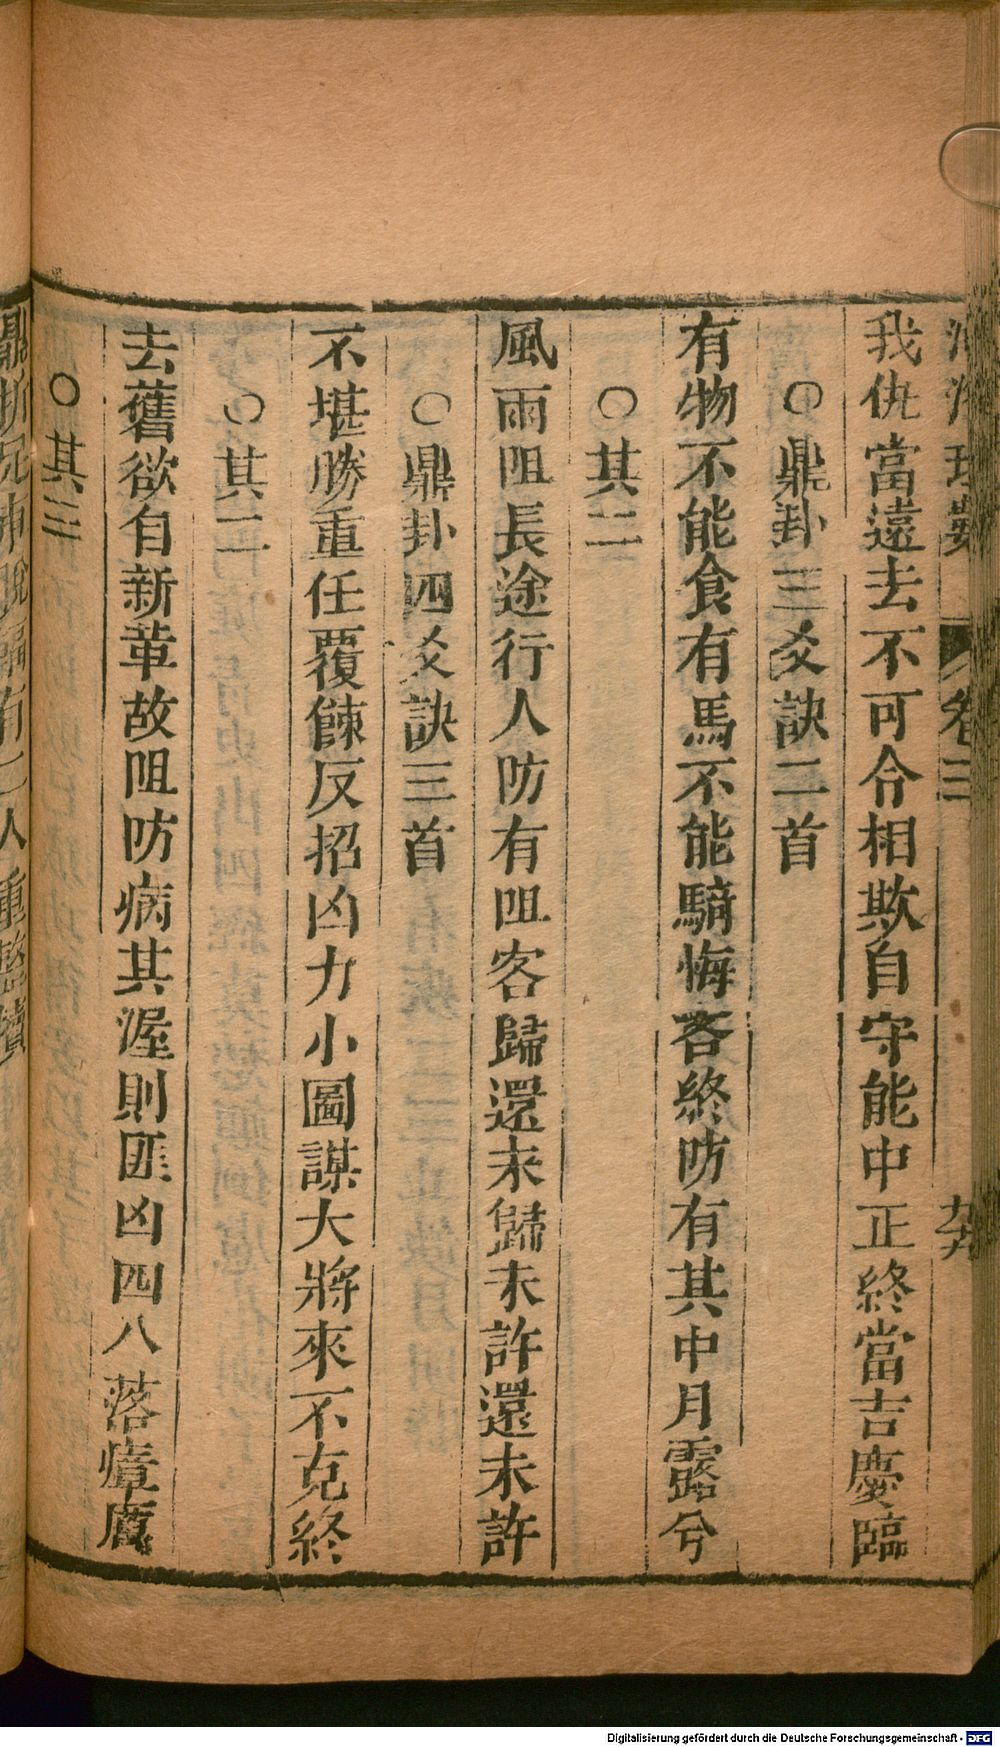 卷三
九十九
我仇當遠去不可令相欺自守能中正終當吉慶臨
○鼎卦三爻訣二首
有物不能食有馬不能騎悔吝終防有其中月露兮
○其二
風雨阻長途行人防有阻客歸還未歸未許還未許
○鼎卦四爻訣三首
不堪勝重任覆餗反招凶力小圖謀大將來不克終
○其二
去舊欲自新革故阻防病其渥則匪凶四八落瘴
○其三
Digitalisierung gefördert durch die Deutsche Forschungsgemeinschaft - DFG